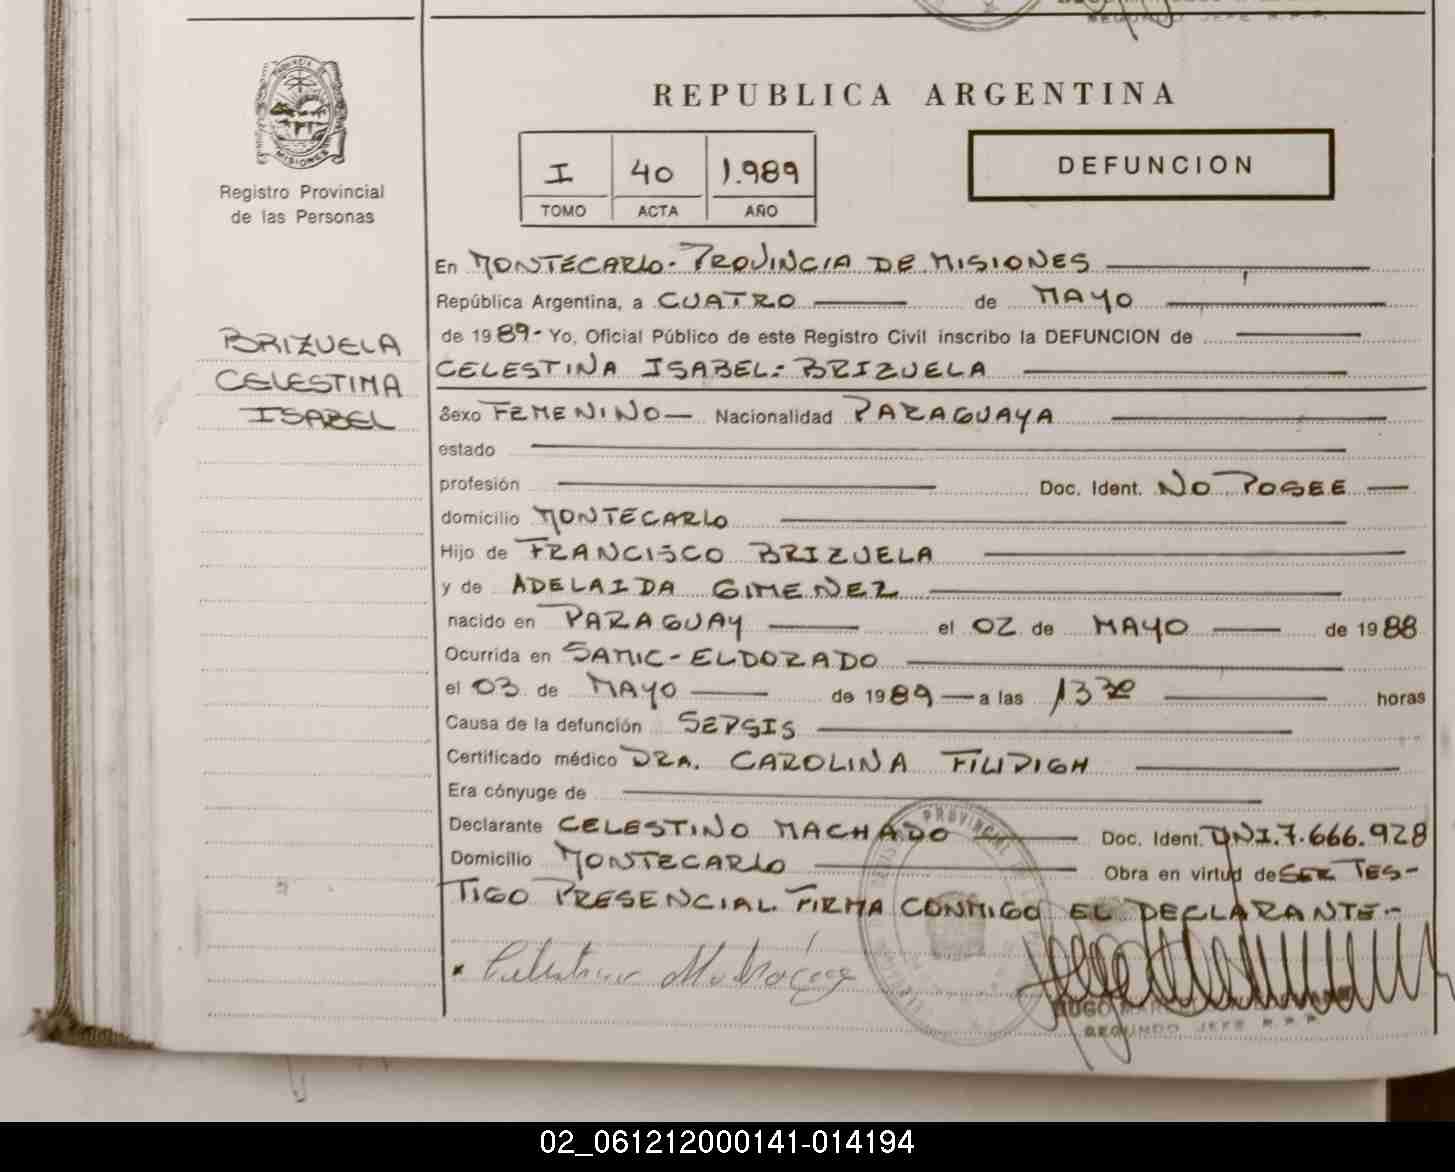 REPUBLICA ARGENTINA
MISIONES
Registro Provincial
de las Personas
I 40 1.989
TOMO ACTA AÑO
DEFUNCION
BRIZUELA
CELESTINA
ISABEL
En MONTECARLO - PROVINCIA DE MISIONES
República Argentina, a CUATRO de MAYO
de 1989- Yo, Oficial Público de este Registro Civil inscribo la DEFUNCION de
CELESTINA ISABEL BRIZUELA
Sexo FEMENINO Nacionalidad PARAGUAYA
estado
profesión Doc. Ident. NO POSEE
domicilio MONTECARLO
Hijo de FRANCISCO BRIZUELA
y de ADELAIDA GIMENEZ
nacido en PARAGUAY el 02 de MAYO de 1988
Ocurrida en SAMIC-ELDORADO
el 03 de MAYO de 1989 a las 13 30 horas
Causa de la defunción SEPSIS
Certificado médico DRA. CAROLINA
Era cónyuge de
Declarante CELESTINO MACHADO Doc. Ident. DNI.7.666.928
Domicilio MONTECARLO Obra en virtud de SER TES-
TIGO PRESENCIAL. FIRMA CONMIGO EL DECLARANTE.-
SEGUNDO JEFE R.P.P.
02_061212000141-014194